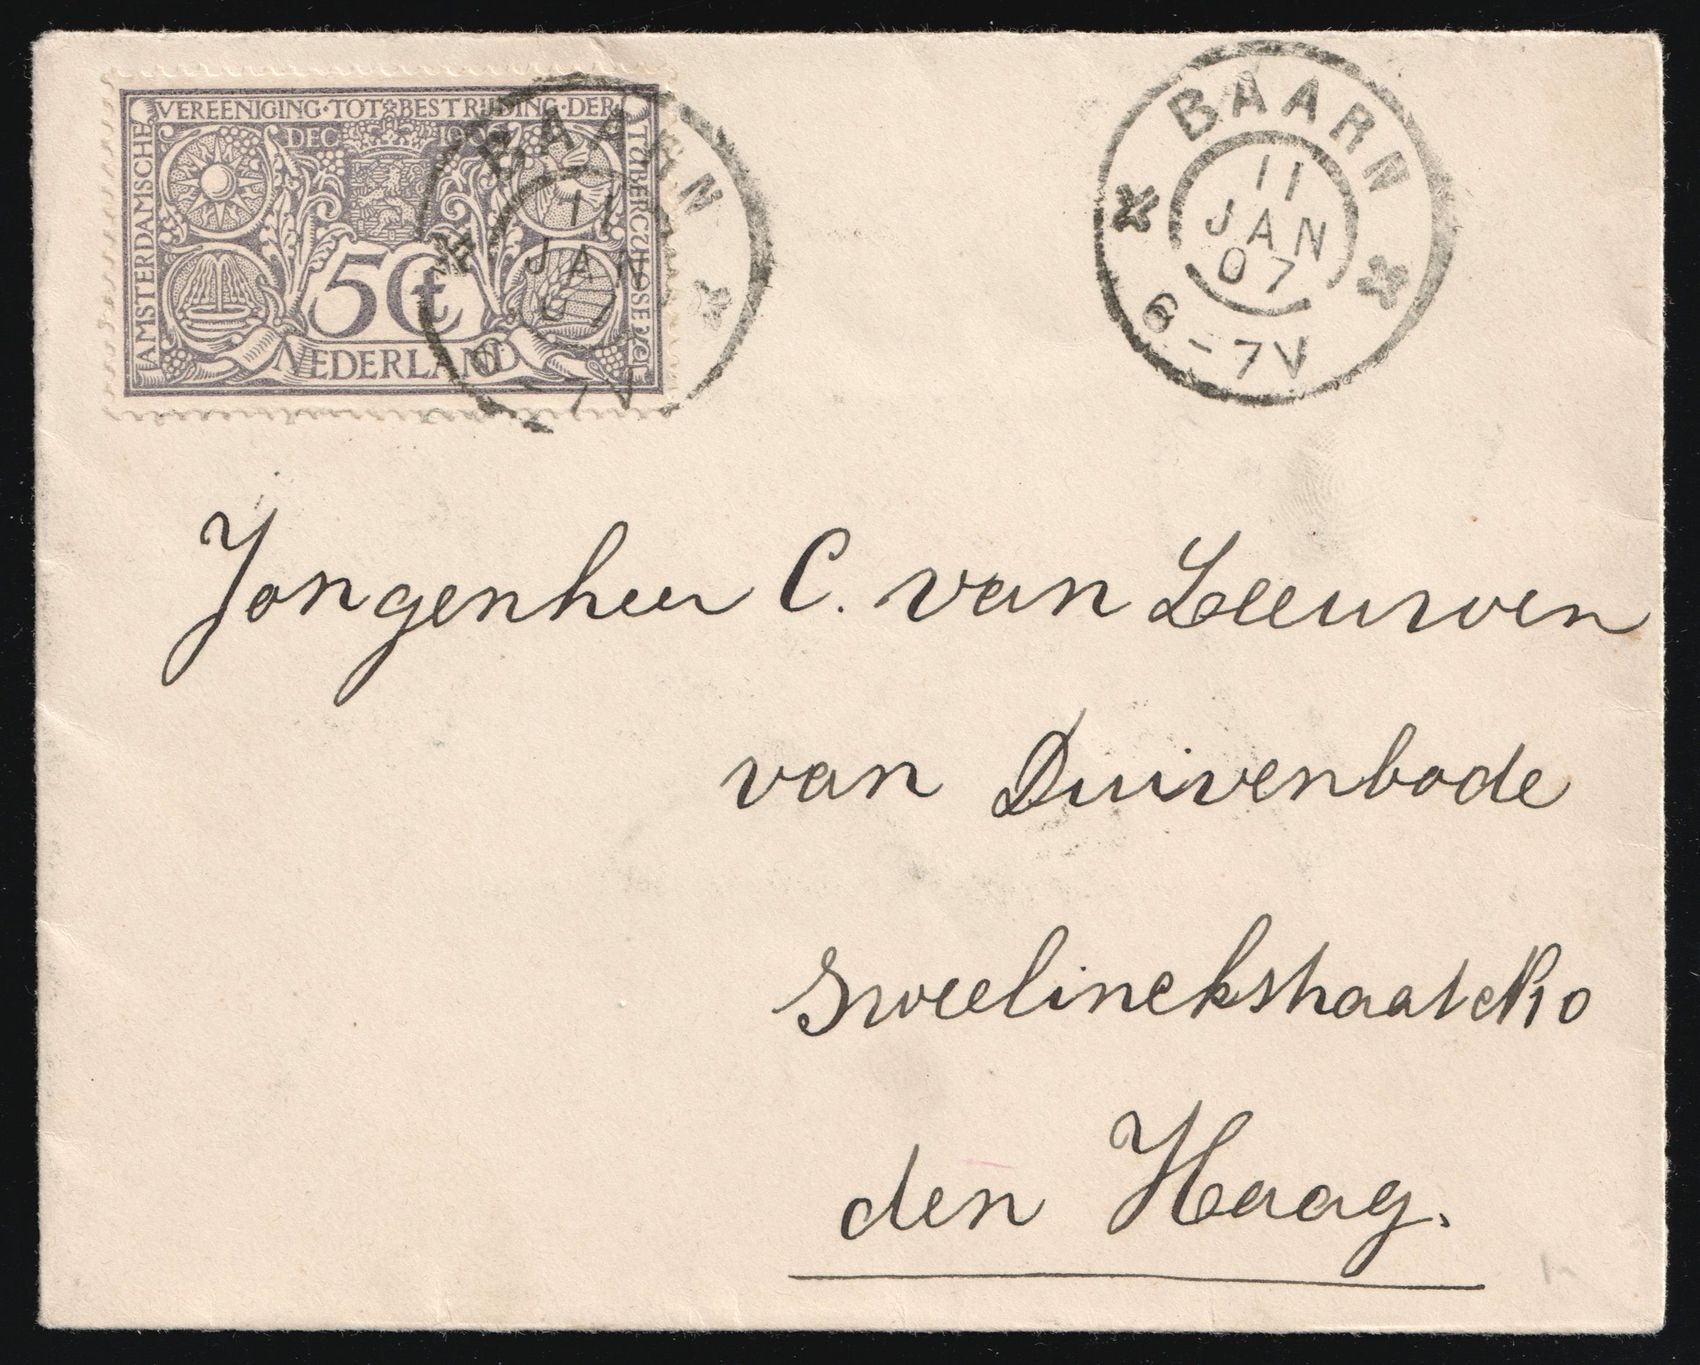 AMSTERDAMSCHE VEREENIGING·TOT BESTRIJDING·DER TUBERCULOSE
DEC 1906
5Ct
NEDERLAND
BAARN
11
JAN
07
6-7V
BAARN
11
JAN
07
6-7V
Jongenheer C. van Leeuwen
van Duivenbode
Sweelinckstraat No 10
den Haag.